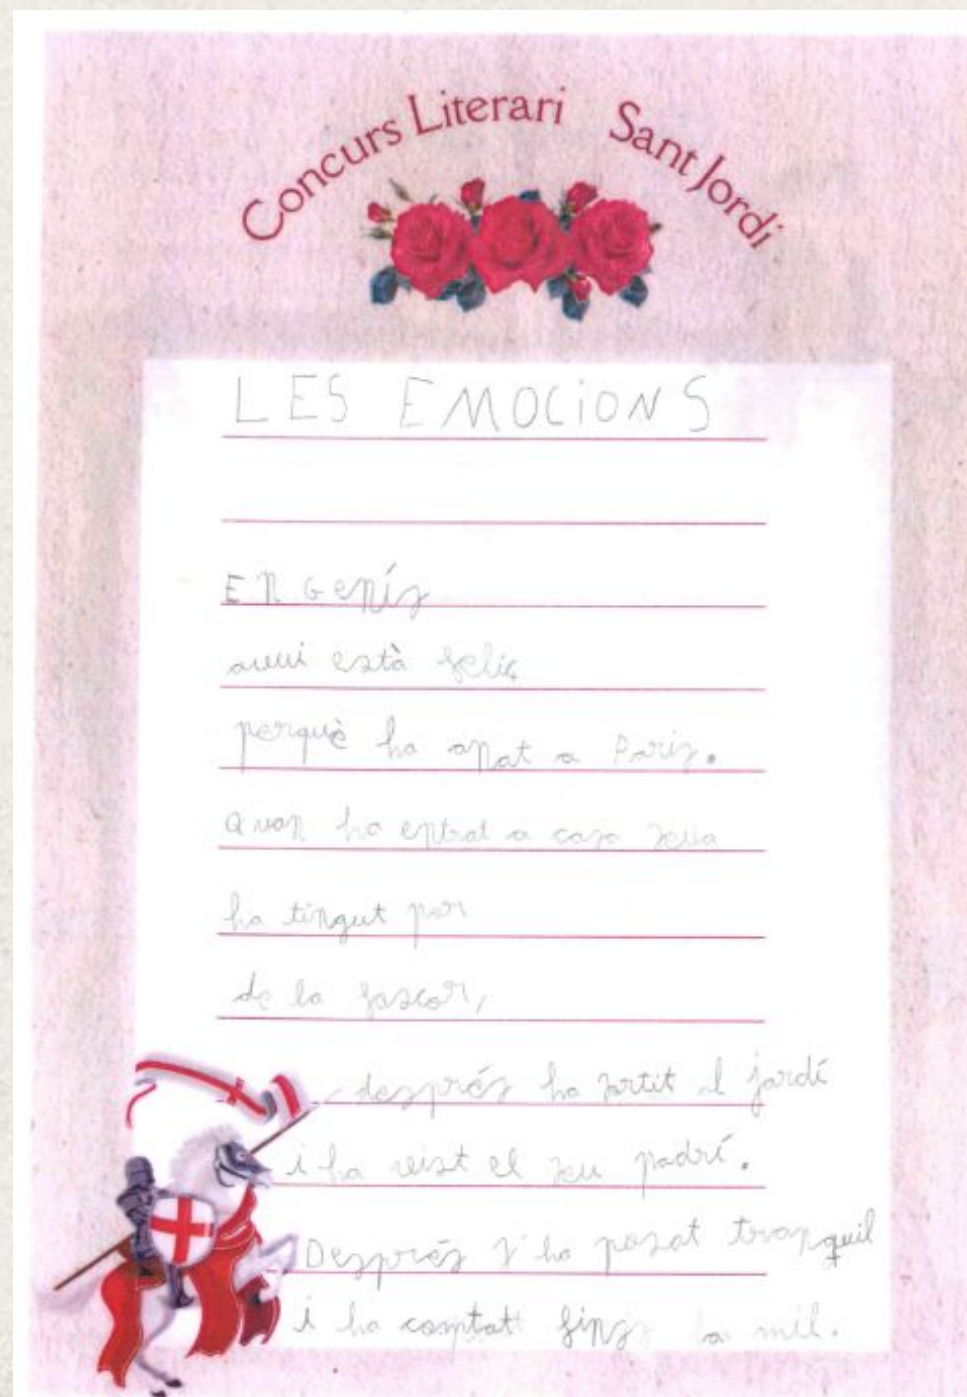 Concurs Literari Sant Jordi
LES EMOCIONS
EN Genís
avui està feliç
perquè ha anat a París.
Quan ha entrat a casa seva
ha tingut por
de la foscor,
després ha sortit al jardí
i ha vist el seu padrí.
Després s'ha posat tranquil
i ha comptat fins a mil.